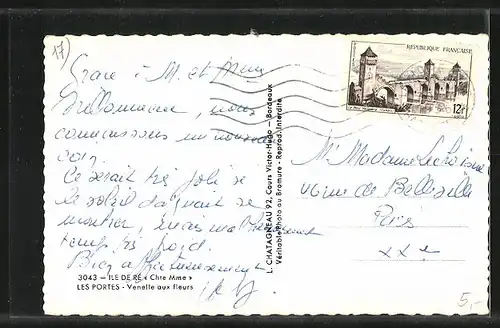 17)
REPUBLIQUE FRANÇAISE
12F
POSTES
Grâce à M. et Mme
nous
connaissons un nouveau
coin.
Ce serait très joli si
le soleil daignait se
montrer, mais malheureusement
temps très froid.
Bien affectueusement
3043 - ILE DE RÉ « Chte Mme »
LES PORTES - Venelle aux fleurs
L. CHATAGNEAU 92, Cours Victor-Hugo - Bordeaux
Véritable Photo au Bromure - Reprod. Interdite
M. Madame
de Belleville
Paris
XXe
5,-